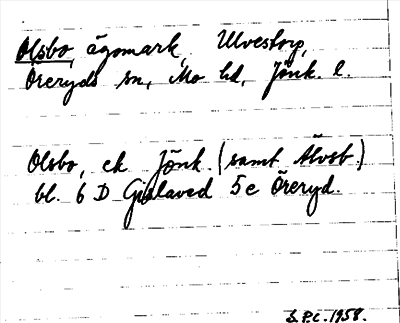 Olsbo, ägomark, Ulvestorp,
Öreryds sn, Mo hd, Jönk. l.
Olsbo, ek Jönk. (samt Älvsb.)
bl. 6 D Gislaved 5 e Öreryd.
S.P.C. 1958.